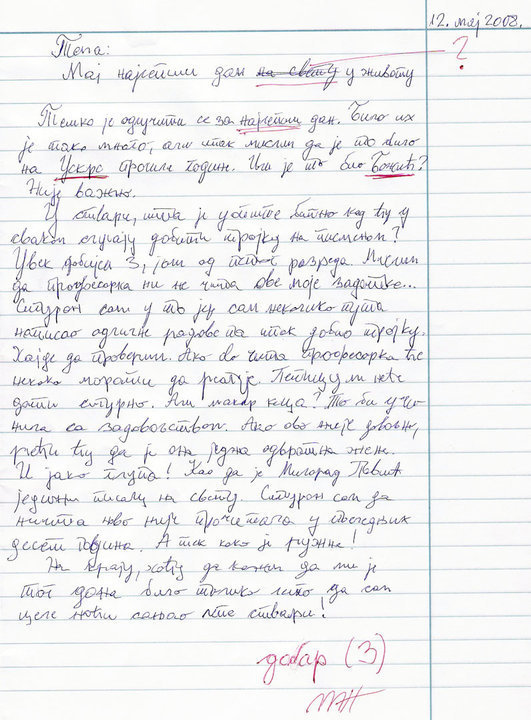 12. мај 2008.
Тема:
Мој најлепши дан на свету у животу
?
Тешко је одлучити се за најлепши дан. Било их
је тако много, али ипак мислим да је то било
на Ускрс прошле године. Или је то био Божић?
Није важно.
У ствари, шта је уопште битно кад ћу у
сваком случају добити тројку на писменом?
Увек добијем 3, још од петог разреда. Мислим
да професорка ни не чита ове моје задатке...
Сигуран сам у то јер сам неколико пута
написао одличне радове па ипак добио тројку.
Хајде да проверим. Ако ово чита професорка ће
некако морати да реагује. Петицу ми неће
дати сигурно. Али макар кеца? То би учи-
нила са задовољством. Ако ово није довољно,
рећи ћу да је она једна одвратна жена.
И јако глупа! Као да је Милорад Павић
једини писац на свету. Сигуран сам да
ништа ново није прочитала у последњих
десет година. А тек како је ружна!
На крају, хоћу да кажем да ми је
тог дана било толико лепо да сам
целе ноћи сањао лепе ствари!
добар (3)